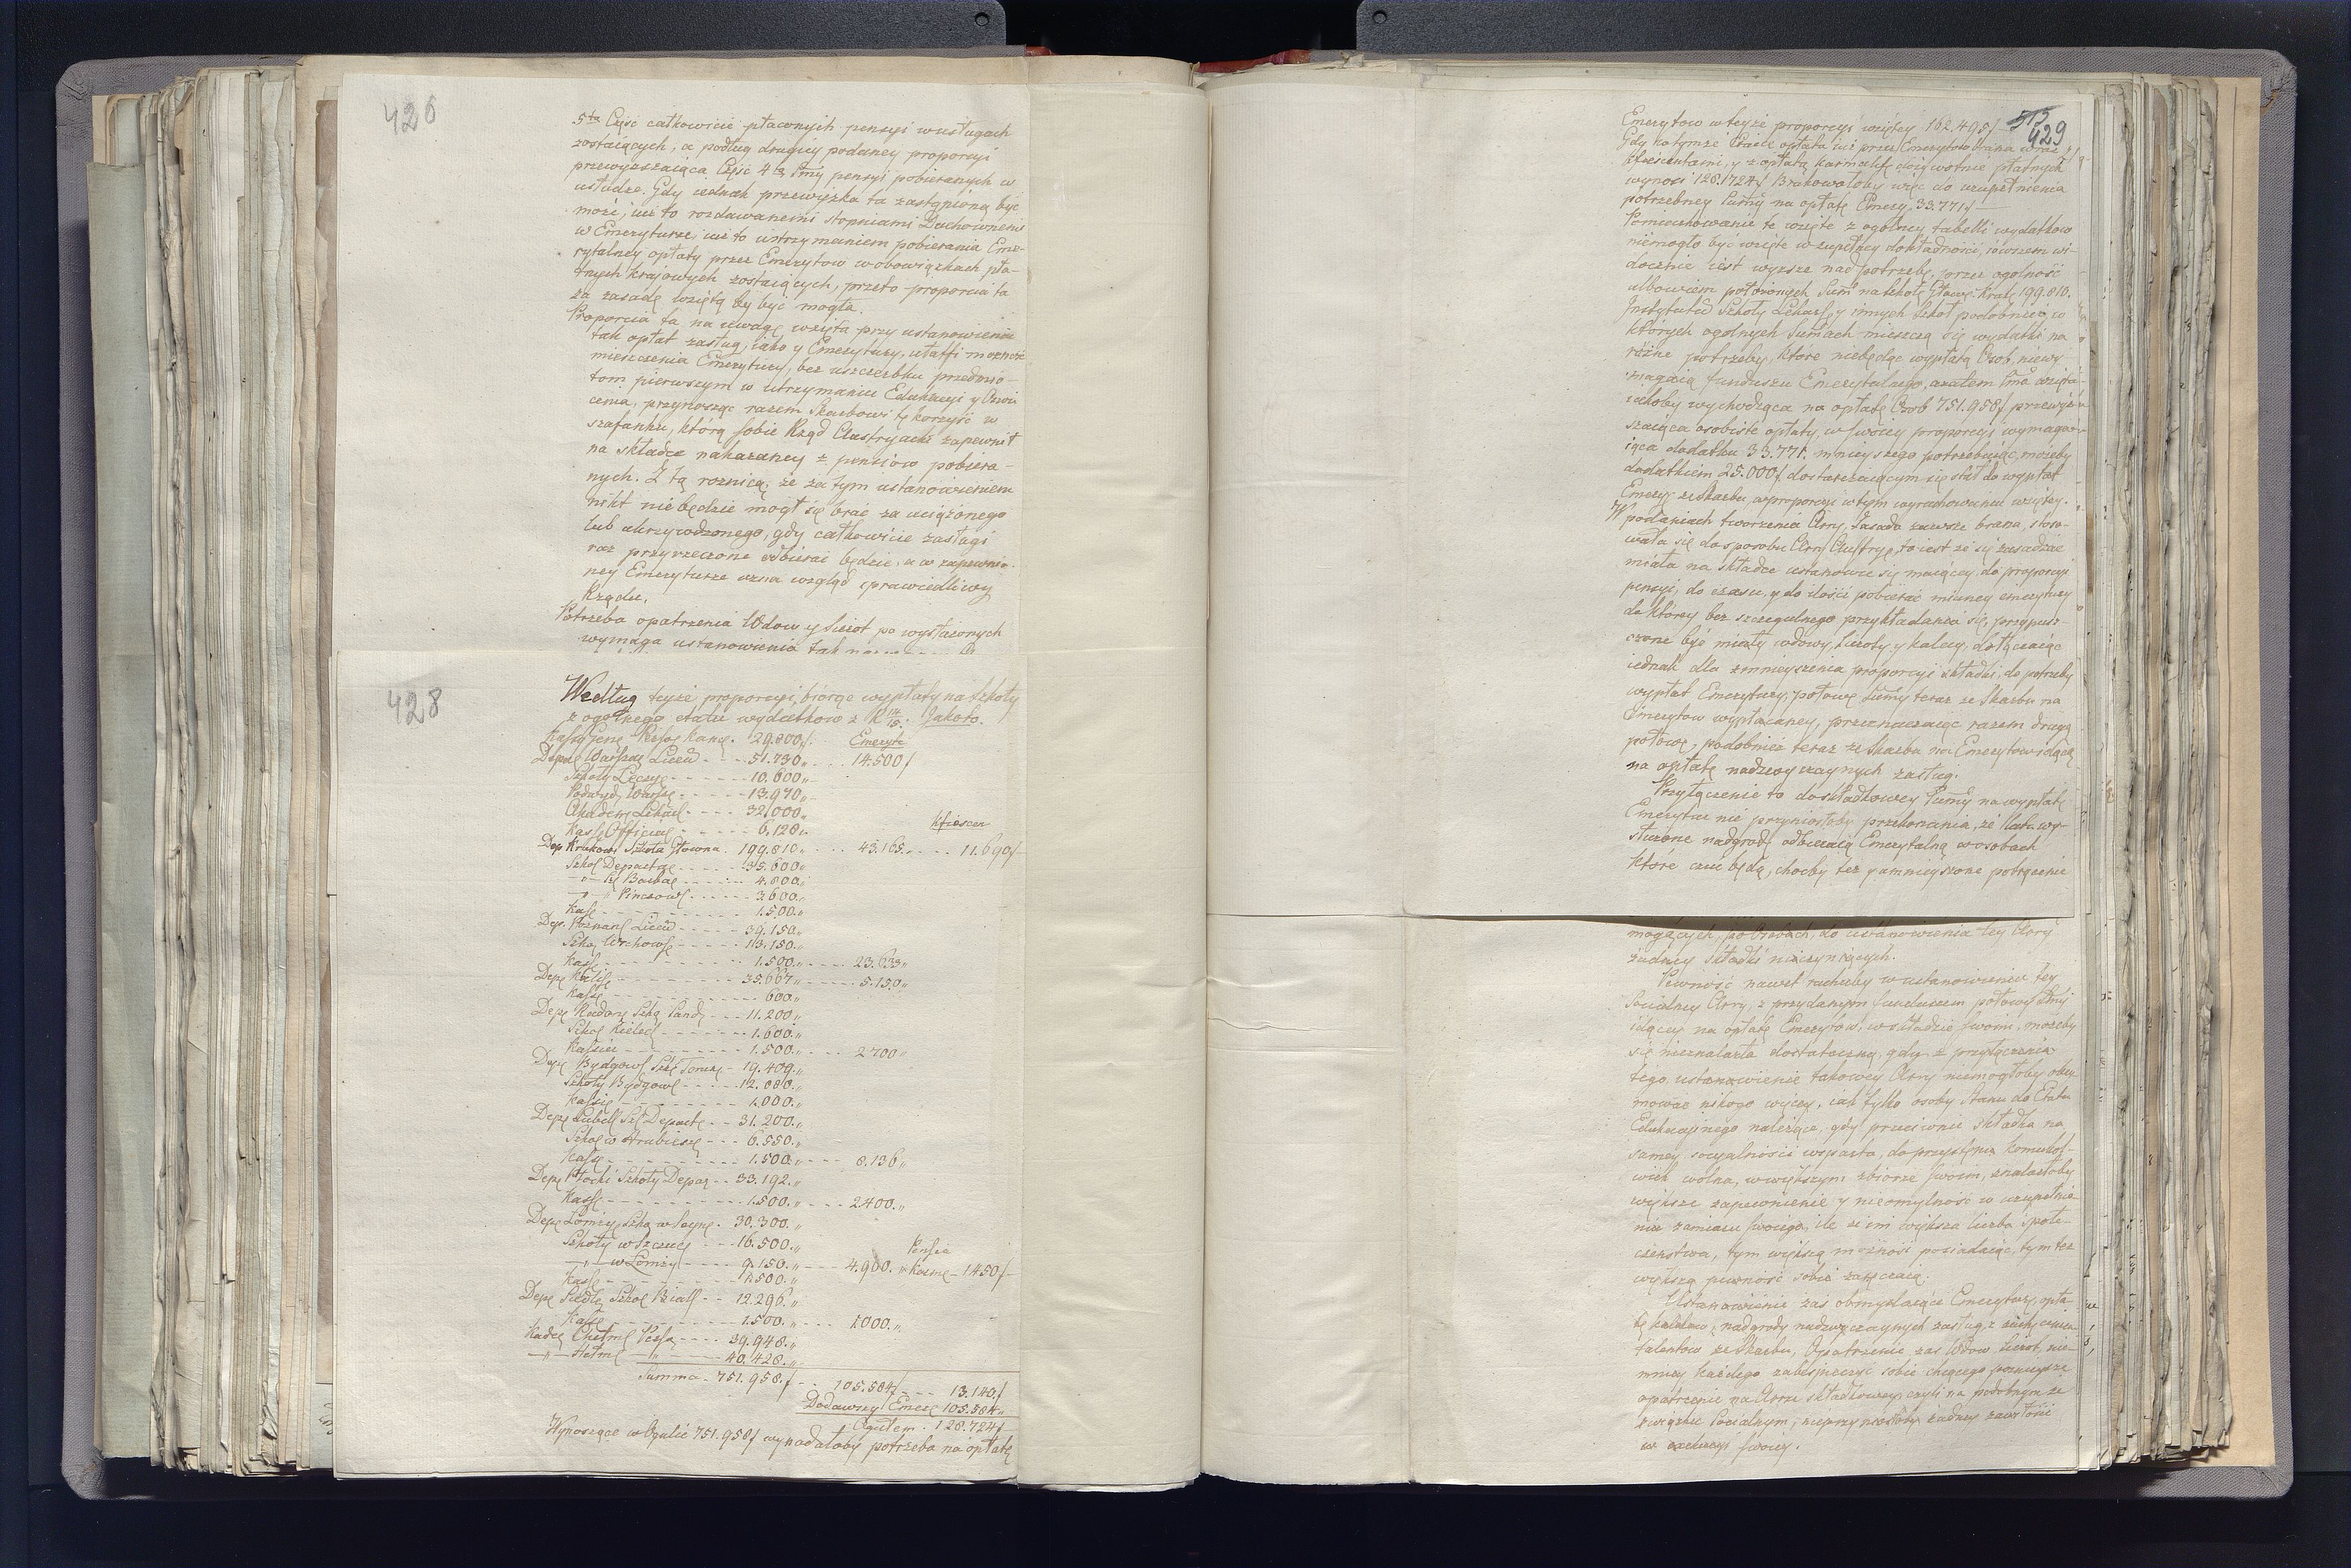 426
5ta Częśc całkowicie płaconych pensyi w usługach
zostaiących, a podług drugiey podaney proporcyi
przewyższaiąca Część 4tą Sumy pensyi pobieranych w
usłudze. Gdy iednak przewyżka ta zastąpioną być
może, iuż to rozdawanemi stopniami Duchownemi
w Emeryturze, iuż to wstrzymaniem pobierania Eme-
rytalney opłaty przez Emerytow w obowiązkach pła-
tnych krajowych zostaiących, przeto proporcia ta
za zasadę wziętą by być mogła.
Proporcia ta na uwagę wzięta przy ustanowieniu
tak opłat zasług, iako y Emerytury, ułatwi możność
mieszczenia Emerytury, bez uszczerbku przedmio-
tom pierwszym w utrzymaniu Edukacyi y Oświe
cenia, przynosząc razem Skarbowi tę korzyść w
szafunku, którą sobie Rząd Austryacki zapewnił
na składce nakazaney z pensiow pobiera-
nych. Z tą roznicą, że za tym ustanowieniem
nikt nie będzie mogł się brać za uciążonego
lub ukrzywdzonego, gdy całkowicie zasługi
raz przyrzeczone odbierać będzie, a w zapewnio-
ney Emeryturze uzna wzgląd sprawiedliwy
Rządu.
Potrzeba opatrzenia Wdow y Sierot po wysłużonych
wymaga ustanowienia tak
428
Według teyże proporcyi, biorąc wypłaty na Szkoły
z ogolnego etatu wydatkow z R 14/15. Jakoto.
29.800 Emeryci
Depar Warszaw Liceu - - - 51.730 - - - 14.500f
Szkoły Łęczyc - - - - 10.600
Podwydz Warsz - - - - 13.970
Akadem Lekars - - - - 32.000
Kass Official - - - - 6.120
Kfiescen
Dep Krakow Szkoła Głowna . 199.810 - - - 43.165 - - - 11.690f
Szkoł Departac - - - - 35.600
4.800
Pinczows - - - - 3.600
Kass - - - - 1.500
Dep. Poznans Liceu - - - - 39.150
Szkoł Wschows - - - - 13.150
Kass - - - - 1.500 - - - 23.633
Dep Kalis - - - - 35.667 - - - 5.150
Kass - - - - 600
Dep Radoms Szko Sand - - - 11.200
Szkoł Kielec - - - - 1.600
Kassie - - - - 1.500 - - - 2700
Dep Bydgows Szk Toruns - 19.409
Szkoły Bydgows - - - - 12.080
Kassie - - - - 1.000
Dep Lubels Szk Departe - - 31.200
Szkoł w Hrubiesz - - - 6.550
Kass - - - - 1.500 - - - 8.136
Depa Płocki Szkoły Depar - - 33.192
Kass - - - - 1.500 - - - 2400
Depa Łomży Szko w Seyn - 30.300
Szkoły w Szczuc - - - 16.500
Pensie
- " - w Łomży - - - 9.150 - - - 4.900 - 1450f
Kass - - - - 1.500
Depa Siedle Szkoł Bials - - 12.296
Kass - - - - 1.500 - - - 1000
Chełms - - - 39.948
- " - - - 40.428
Summa - 751.958f - - 105.584f - - 13.140f
Dodawszy Emery 105.584
Ogułem . 128.724f
Wynosząca w Ogule 751.958f wypadałaby potrzeba na opłatę
515
429
Emerytow w teyże proporcyi wziętey 162.495f
Gdy opłata iuż przez Emerytow brana wraz z
Kfiescentami, y z opłatą dożywotnie płatnych
wynosi 128.1724f Brakowałoby więc do uzupełnienia
potrzebney Sumy na opłatę Emery. 33.771f
Pomiarkowanie te wzięte z ogolney tabelli wydatkow
niemogło być wzięte w zupełney dokładności, iednem wi-
docznie iest wyższe nad potrzebę, przez ogolność
albowiem położonych Sum na Szkołę Głową Krak 199.810.
Instytutu Szkoły Lekars y innych Szkoł podobnież, w
ktorych ogolnych Sumach mieszczą się wydatki na
różne potrzeby, ktore niebędąc wypłatą Osob, niewy-
magaią funduszu Emerytalnego, azatem Suma wzięta
iakoby wychodząca na opłatę Osob 751.958f przewyż-
szaiąca osobiste opłaty, w swoiey proporcyi wymaga-
iąca dodatku 33.771 mnieyszego potrzebuiąc, możeby
dodatkiem 25.000f dostarczaiącym się stał do wypłat
Emery ze Skarbu, w proporcyi w tym wyrachowaniu wziętey.
W podaniach tworzenia Assy, Zasada zawsze brana, stoso-
wała się do sposobu Assy Austrye, to iest że się zasadzać
miała na składce ustanowić się maiącey, do proporcyi
pensyi, do czasu, y do ilości pobierać mianey emerytury
do ktorey bez szczegulnego przykładania się, przypusz-
czone być miały wdowy, sieroty, y kaleey, dołączaiąc
iednak dla zmnieyszenia proporcyi składki, do potrzeby
wypłat Emerytury, połowę sumy teraz ze Skarbu na
Emerytow wypłacaney, przeznaczaiąc razem drugą
połowę, podobnież teraz ze Skarbu na Emerytow idącą
na opłatę nadzwyczaynych zasług.
Przyłączenie to do składkowey Sumy na wypłatę
Emerytur nie przyniosłoby przekonania, że lata wy-
służone nadgrodę odbieraią Emerytalną w osobach
ktore czuć będą, choćby też y umnieyszone potrącenie
mogących, po Osobach, do ustanowienia tey Assy
żadney składki nieczyniących.
Pewność nawet rachuby w ustanowieniu tey
Socialney Assy, z przydanym funduszem połowy Sumy
idącey na opłatę Emerytow, w składzie swoim, możeby
się nieznalazła dostateczną, gdy z przyłączenia
tego, ustanowienie takowey Assy niemogłoby obey-
mować nikogo więcey, iak tylko osoby Stanu do Etatu
Edukacyinego należące, gdy przeciwnie składka na
samey socyalności wsparta, do przystępu komukol-
wiek wolna, w większym zbiorze swoim, znalazłaby
większe zapewnienie y nieomylność w uzupełnie
niu zamiaru swoiego, ile że im większa liczba społe-
czeństwa, tym większą możność posiadaiąc, tym też
większą pewność sobie zaręczaią.
Ustanowienie zaś obmyślaiące Emeryturę, opła-
tę kalectw, nadgrody nadzwyczaynych zasług, z
talentow ze Skarbu, Opatrzenie zaś Wdow Sierot, nie-
mniey każdego zabezpieczyć sobie chcącego pomniejsze
opatrzenie na Assie składkowey, czyli na podobnym że
związku Socialnym, nieprzyniosłoby żadney zawiłości
w exekucyi swoiey.